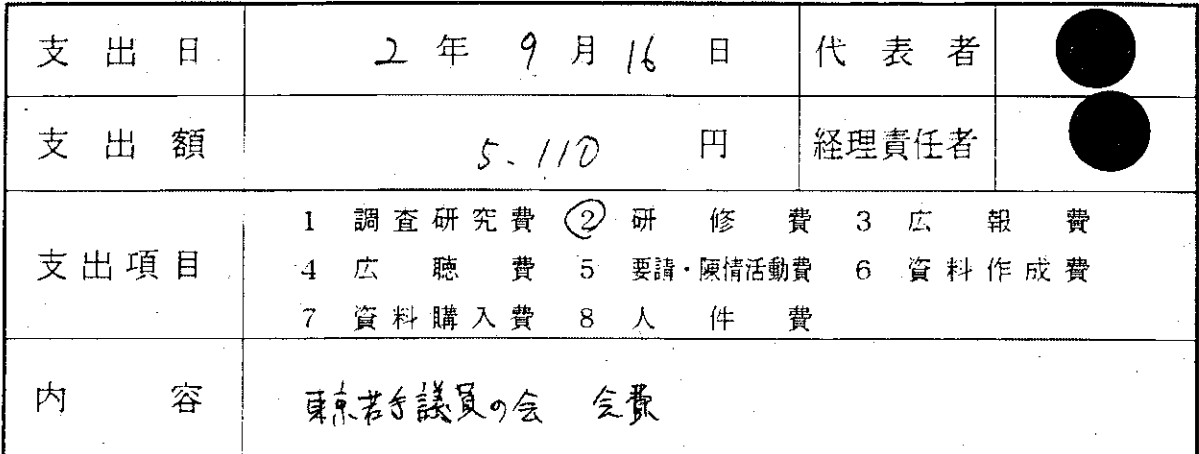 支出日 2年9月16日 代表者
支出額 5.110円 経理責任者
支出項目 1 調査研究費 ② 研修費 3 広報費
4 広聴費 5 要請・陳情活動費 6 資料作成費
7 資料購入費 8 人件費
内容 東京若手議員の会 会費